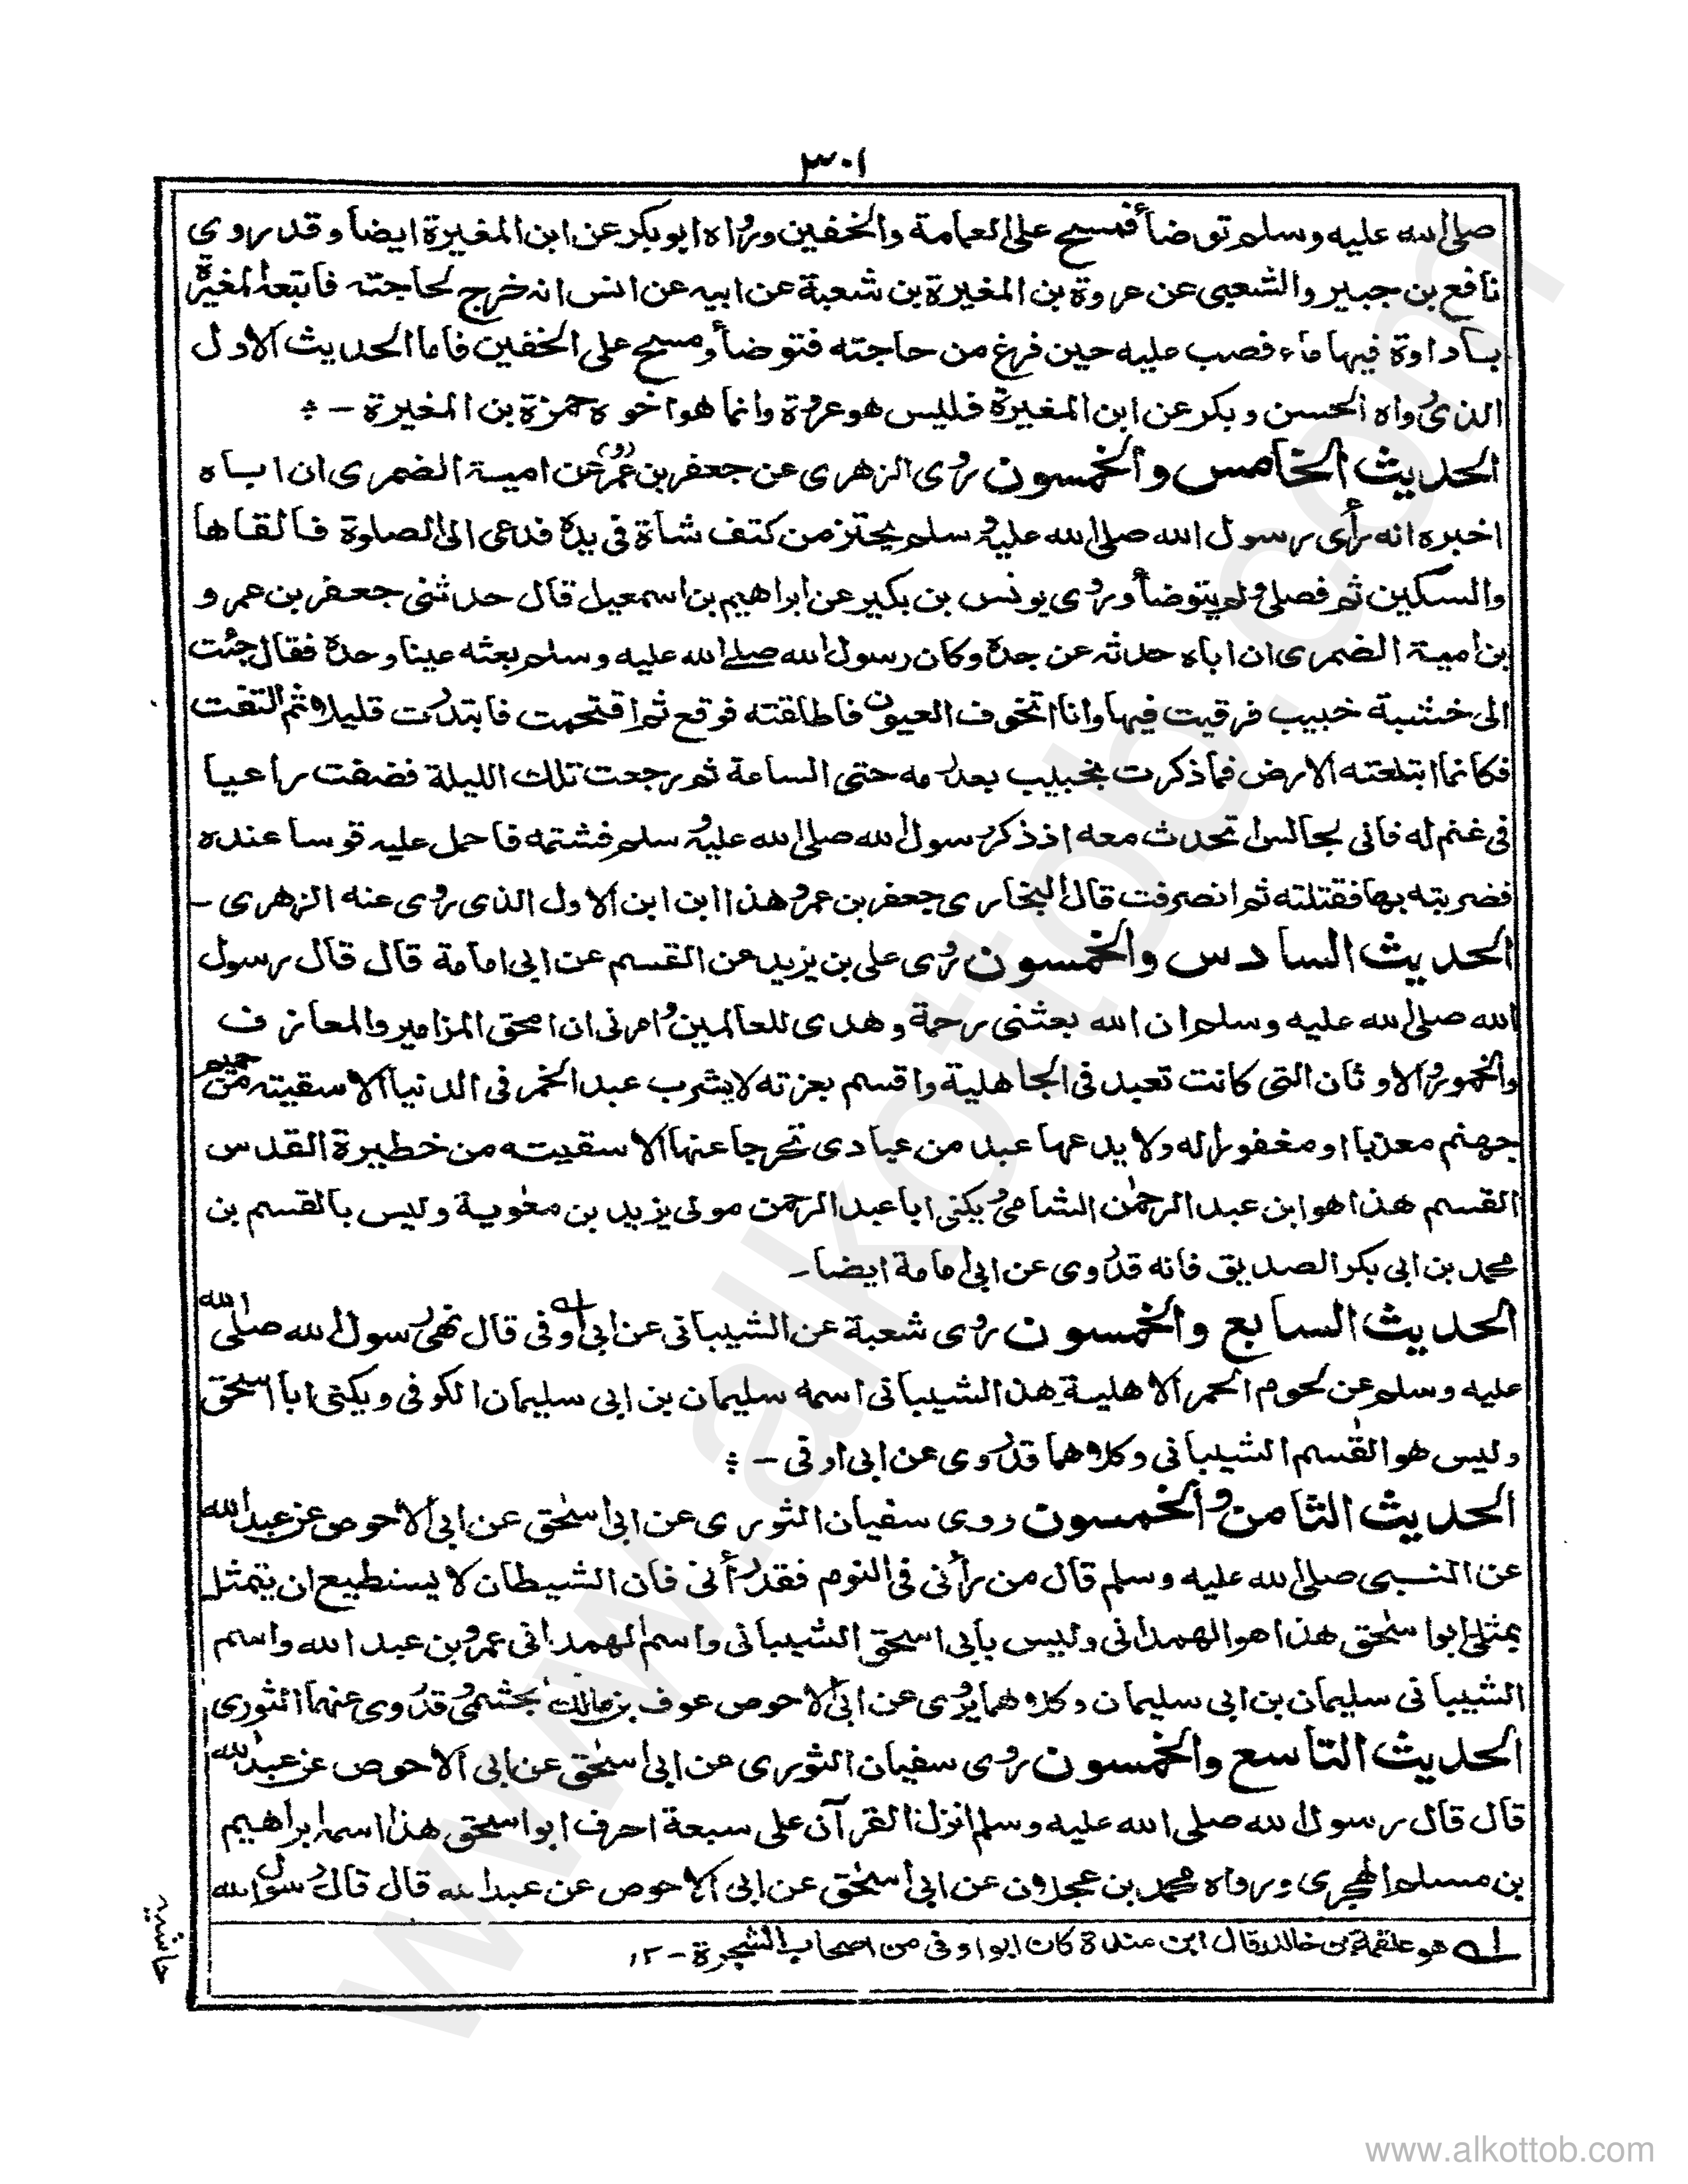 ٣٠١
صلى الله عليه وسلم توضأ فمسح على العمامة والخفين ورواه ابو بكر عن ابن المغيرة ايضا وقد روى
نافع بن جبير والشعبى عن عروة بن المغيرة بن شعبة عن ابيه عن انس انه خرج لحاجته فاتبعه المغيرة
باداوة فيها ماء فصب عليه حين فرغ من حاجته فتوضأ ومسح على الخفين فاما الحديث الاول
الذى رواه الحسن وبكر عن ابن المغيرة فليس هو عروة وانما هو اخوه حمزة بن المغيرة -
الحديث الخامس والخمسون روى الزهرى عن جعفر بن عمرو عن امية الضمرى ان اباه
اخبره انه رأى رسول الله صلى الله عليه وسلم يحتز من كتف شاة فى يده فدعى الى الصلوة فالقاها
والسكين ثم فصلى ولم يتوضأ وروى يونس بن بكير عن ابراهيم بن اسمعيل قال حدثنى جعفر بن عمرو
بن امية الضمرى ان اباه حدثه عن جده وكان رسول الله صلى الله عليه وسلم بعثه عينا وحده فقال جئت
الى خشبة خبيب فرقيت فيها وانا اتخوف العيون فاطلقته فوقع ثم اقتحمت فابتدرت قليلا ثم التفت
فكانما ابتلعته الارض فما ذكرت بخبيب بعد رمه حتى الساعة ثم رجعت تلك الليلة فضفت راعيا
فى غنم له فانى لجالس اتحدث معه اذ ذكر رسول الله صلى الله عليه وسلم فشتمه فاحمل عليه قوسا عنده
فضربته بها فقتلته ثم انصرفت قال البخارى جعفر بن عمرو هذا ابن ابن الاول الذى روى عنه الزهرى -
الحديث السادس والخمسون روى على بن يزيد عن القسم عن ابى امامة قال قال رسول
الله صلى الله عليه وسلم ان الله بعثنى رحمة وهدى للعالمين وامرنى ان امحق المزامير والمعازف
والخمور والاوثان التى كانت تعبد فى الجاهلية واقسم بعزته لا يشرب عبد الخمر فى الدنيا الا سقيته من حميم
جهنم معذبا او مغفورا له ولا يدعها عبد من عبادى تحرجا عنها الا سقيته من خطيرة القدس
القسم هذا هو ابن عبد الرحمٰن الشامى ويكنى ابا عبد الرحمن مولى يزيد بن معٰوية وليس بالقسم بن
محمد بن ابى بكر الصديق فانه قد روى عن ابى امامة ايضا -
الحديث السابع والخمسون روى شعبة عن الشيبانى عن ابى اوفى قال نهى رسول الله صلى الله
عليه وسلم عن لحوم الحمر الاهلية هذا الشيبانى اسمه سليمان بن ابى سليمان الكوفى ويكنى ابا اسحٰق
وليس هو القٰسم الشيبانى وكلاهما قد روى عن ابى اوفى -
الحديث الثامن والخمسون روى سفيان الثورى عن ابى اسحٰق عن ابى الاحوص عن عبد الله
عن النبى صلى الله عليه وسلم قال من رأنى فى النوم فقد رأنى فان الشيطان لا يستطيع ان يتمثل
بمثلى ابو اسحٰق هذا هو الهمدانى وليس بابى اسحٰق الشيبانى واسم الهمدانى عمرو بن عبد الله واسم
الشيبانى سليمان بن ابى سليمان وكلاهما يروى عن ابى الاحوص عوف بن مالك بجشمى وقد روى عنهما الثورى
الحديث التاسع والخمسون روى سفيان الثورى عن ابى اسحٰق عن ابى الاحوص عن عبد الله
قال قال رسول الله صلى الله عليه وسلم انزل القرآن على سبعة احرف ابو اسحٰق هذا اسمه ابراهيم
بن مسلم الهجرى ورواه محمد بن عجلان عن ابى اسحٰق عن ابى الاحوص عن عبد الله قال قال رسول الله
له هو علقمة بن خالد قال ابن عندة كان ابو اوفى من اصحاب الشجرة - ١٢
حاشيه
www.alkottob.com
www.alkottob.com